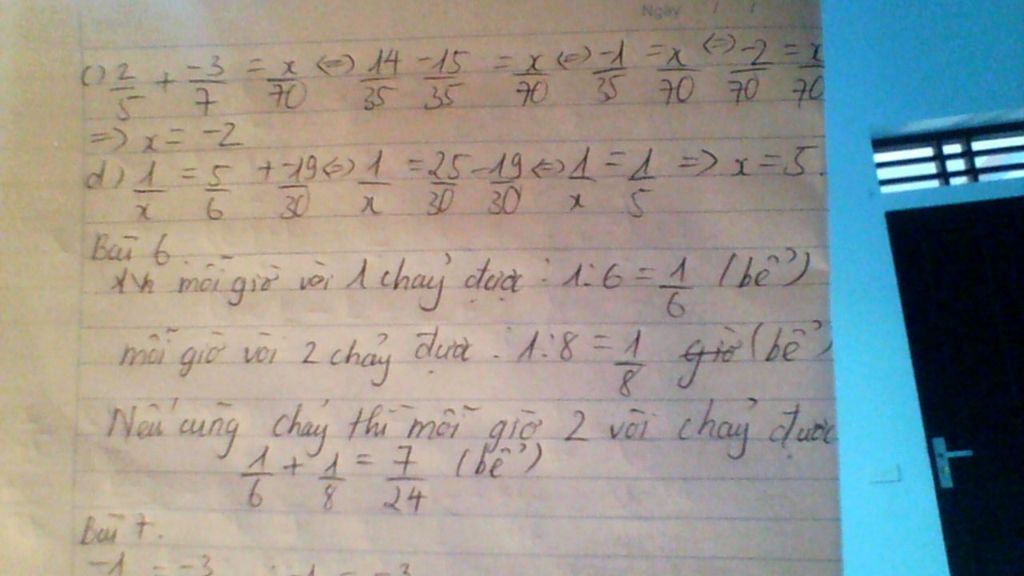 Ngày / /
c) 2/5 + -3/7 = x/70 <=> 14/35 - 15/35 = x/70 <=> -1/35 = x/70 <=> -2/70 = x/70
=> x = -2
d) 1/x = 5/6 + -19/30 <=> 1/x = 25/30 - 19/30 <=> 1/x = 1/5 => x = 5.
Bài 6.
mỗi giờ vòi 1 chảy được : 1:6 = 1/6 (bể)
mỗi giờ vòi 2 chảy được : 1:8 = 1/8 giờ (bể)
Nếu cùng chảy thì mỗi giờ 2 vòi chảy được
1/6 + 1/8 = 7/24 (bể)
Bài 7.
-1 = -3 -1 = -3